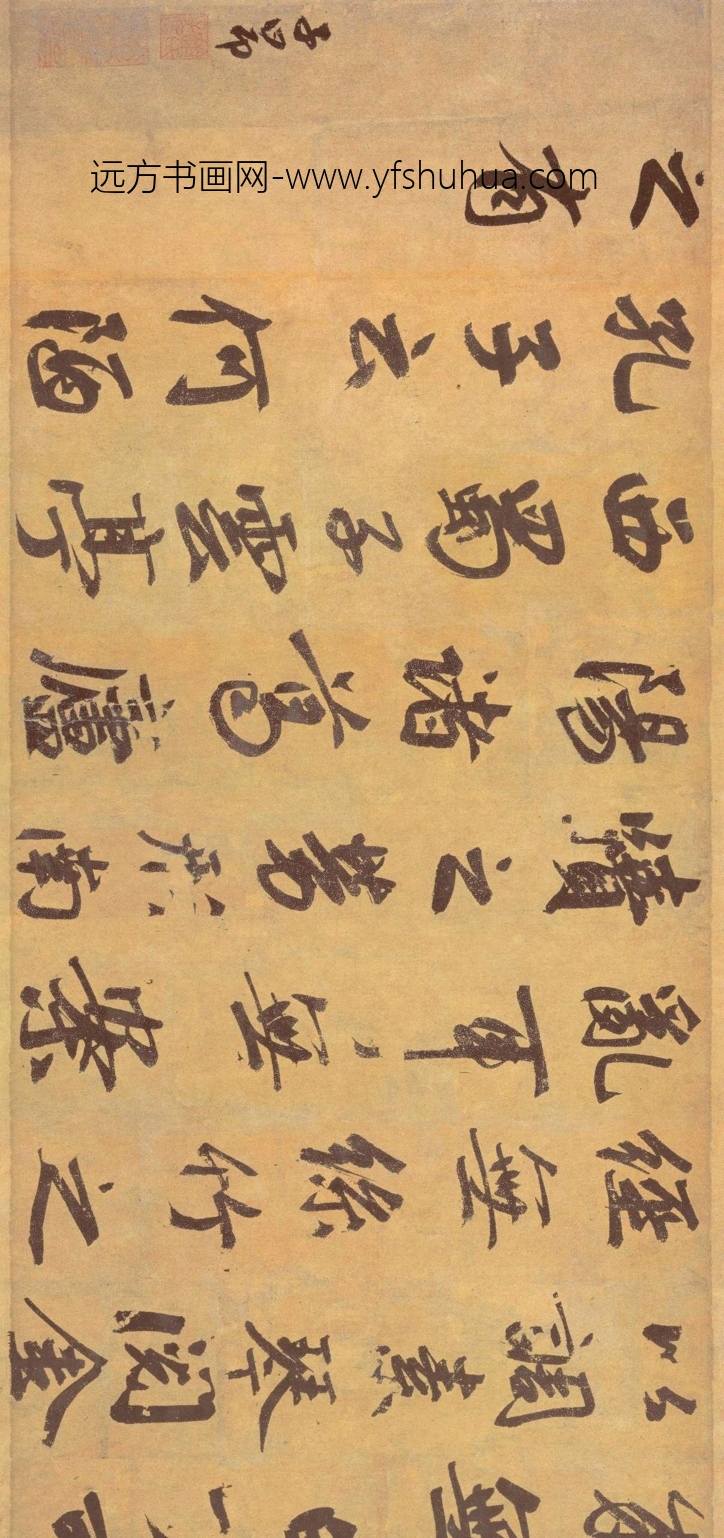 無白丁可
以調素琴閱金
經無絲竹之
亂耳無案
牘之勞形南
陽諸葛廬
西蜀子雲亭
孔子云何陋
之有
子昂
远方书画网-www.yfshuhua.com